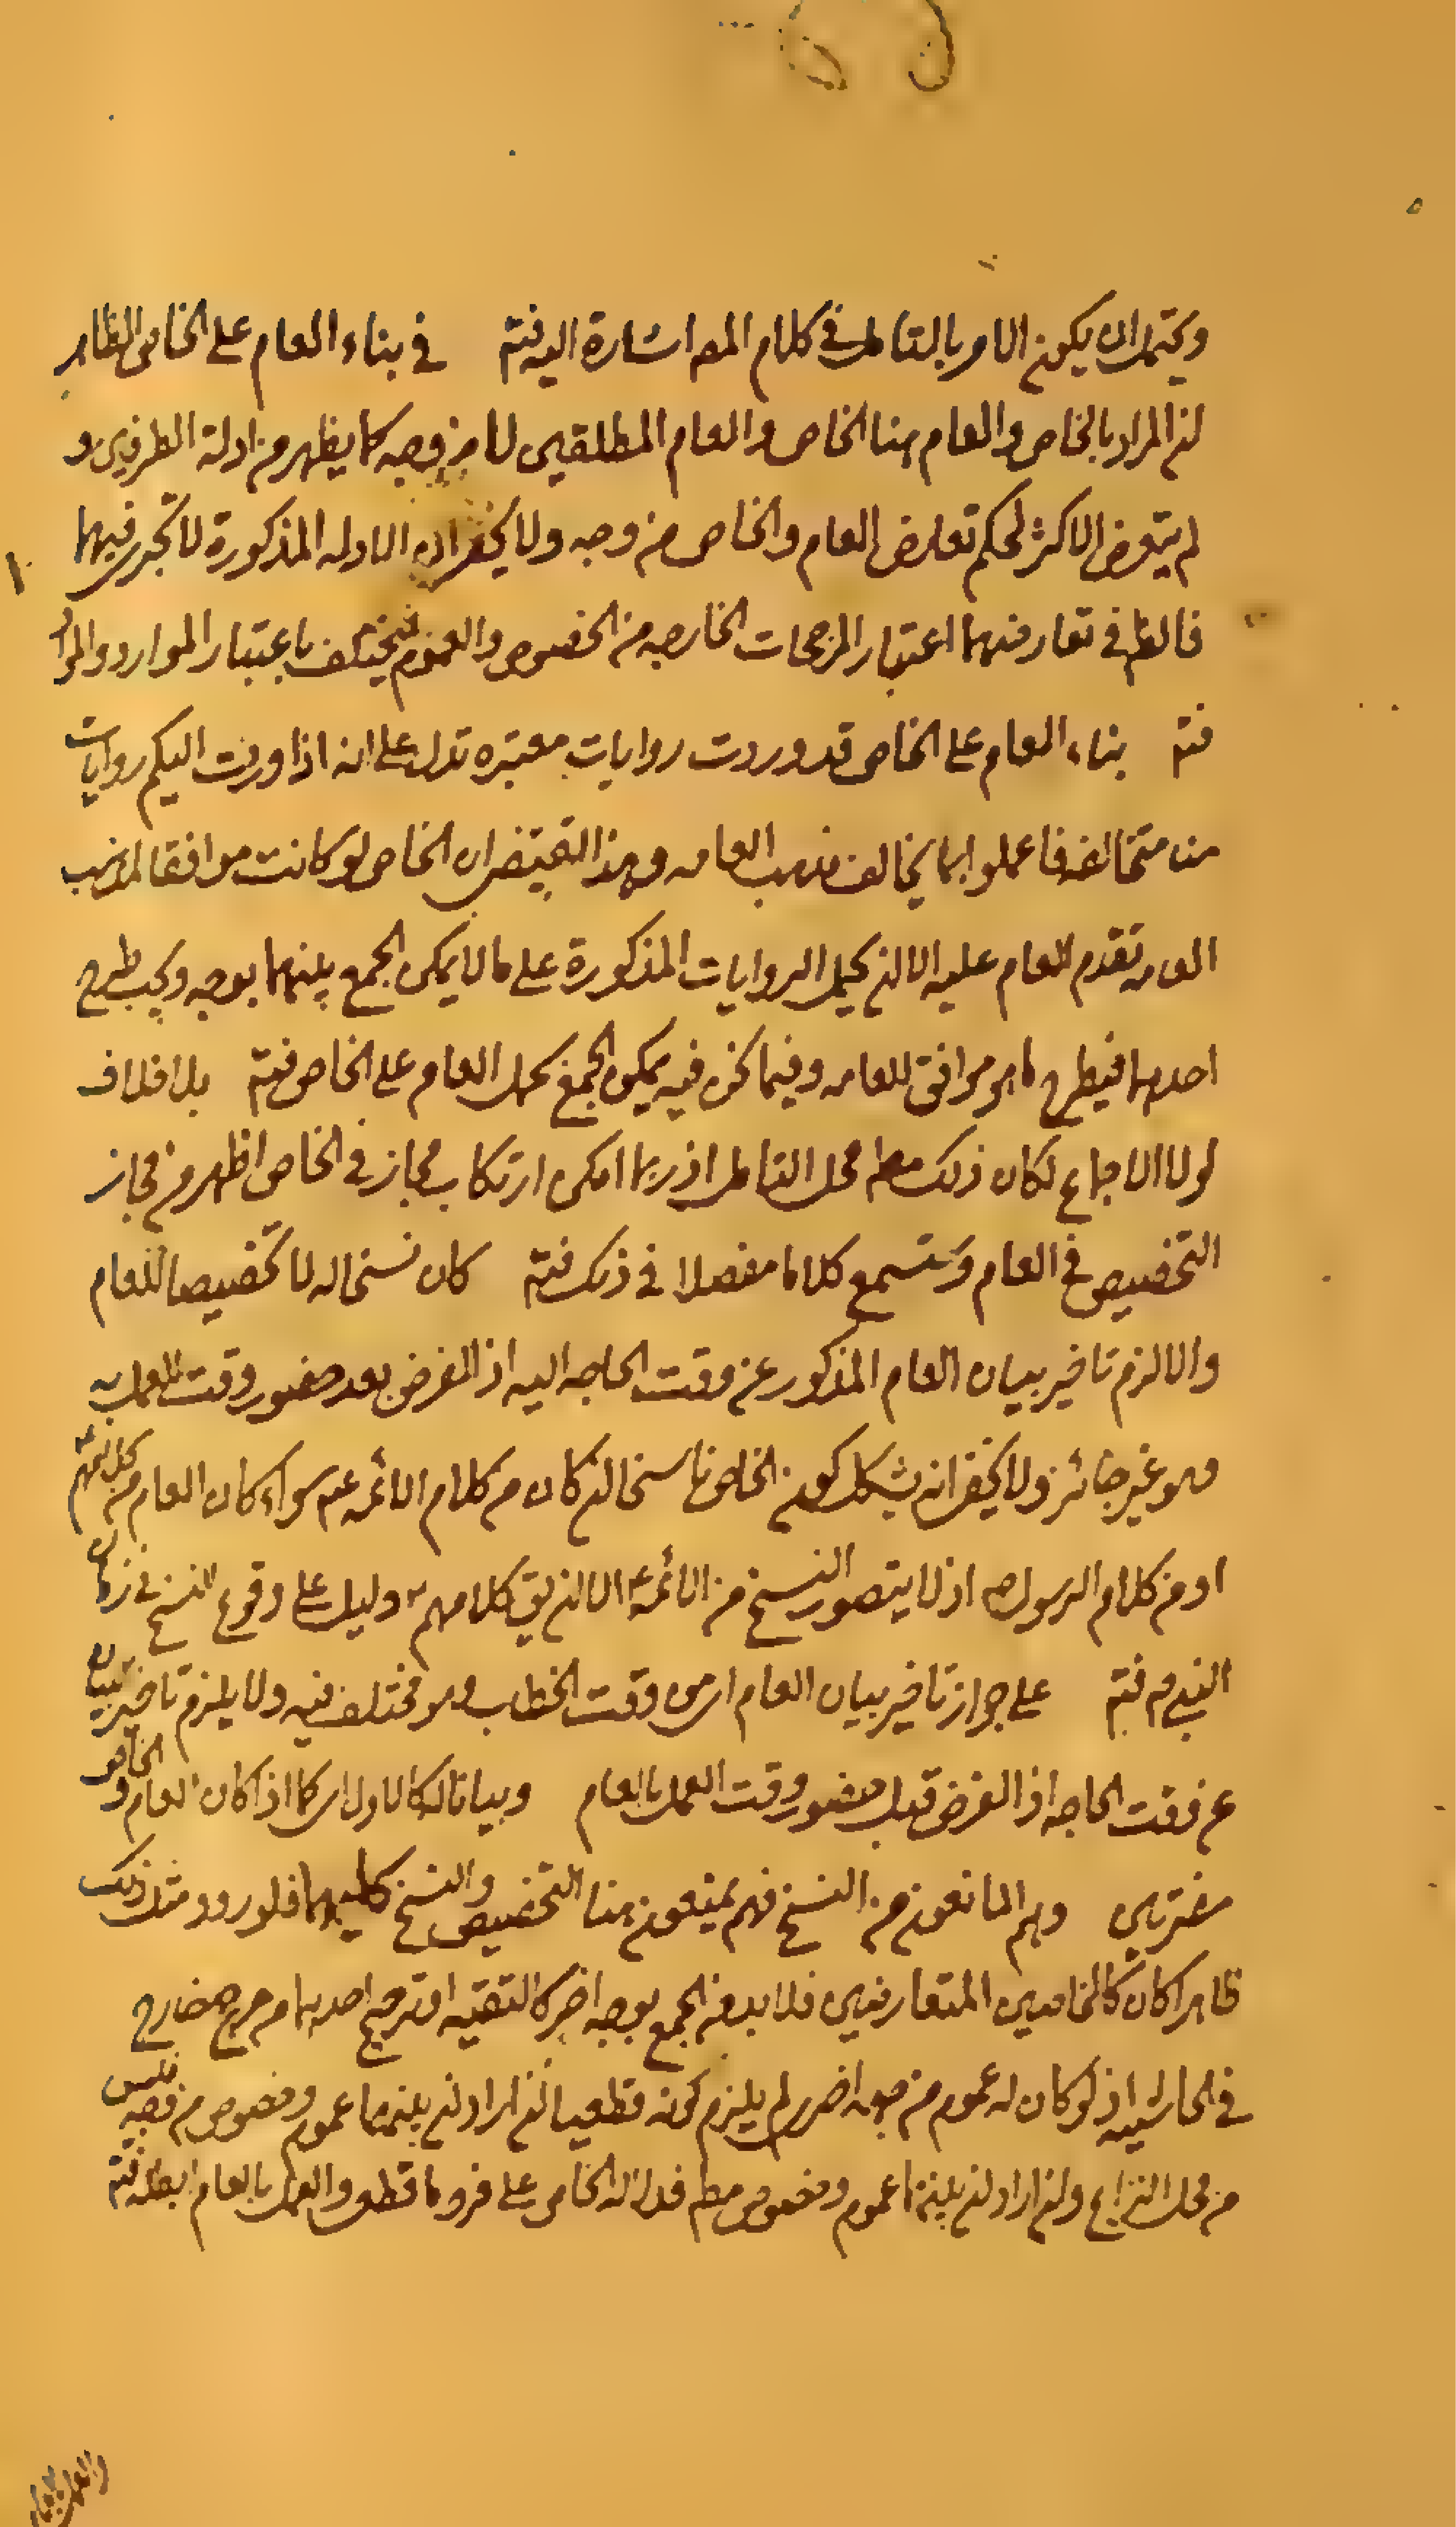 ويحتمل ان يكون الامر بالتامل في كلام المصـ اشارة اليه فتم في بناء العام على الخاص الظاهر
ان المراد بالخاص والعام هنا الخاص والعام المطلقين لا من وجه كما يظهر من ادلة الطرفين و
لم يتعرض الاكثر لحكم تعارض العام والخاص من وجه ولا يخفى ان الادله المذكورة لا تجرى فيهما
فالظ في تعارضهما اعتبار المرجحات الخارجه من الخصوص والعموم فيختلف باعتبار الموارد والمواد
فتم بناء العام على الخاص قد وردت روايات معتبره تدل على انه اذا وردت اليكم روايات
منا متخالفه فاعملوا بما يخالف مذهب العامه وهذا يقتضى ان الخاص لو كانت موافقا لمذهب
العامه تقدم العام عليه الا ان يحمل الروايات المذكورة على ما لا يمكن الجمع بينهما بوجه ويجب طرح
احدهما فيطرح ما هو موافق للعامه وفيما نحن فيه يمكن الجمع بحمل العام على الخاص فتم بلا خلاف
لولا الاجماع لكان ذلك مط محل التامل اذ ربما امكن ارتكاب مجاز في الخاص اظهر من مجاز
التخصيص في العام وستسمع كلاما مفصلا في ذلك فتم كان نسخا له لا تخصيصا للعام
والا لزم تاخير بيان العام المذكور عن وقت الحاجه اليه اذ الفرض بعد حضور وقت العمل به
وهو غير جائز ولا يخفى انه يشكل كون الخاص ناسخا ان كان من كلام الائمه عم سواء كان العام من كلامهم
او من كلام الرسول ص اذ لا يتصور النسخ من الائمه ع الا ان يق كلامهم ع دليل على وقوع النسخ في زمان
النبى ص فتم على جواز تاخير بيان العام اى من وقت الخطاب وهو مختلف فيه ولا يلزم تاخير البيان
عن وقت الحاجه اذ الفرض قبل حضور وقت العمل بالعام وبيانا له كالاول اى كما اذا كان العام و الخاص
مقترنين وهم المانعون من النسخ فهم يمنعون هنا التخصيص والنسخ كليهما فلو ورد مثل ذلك
ظاهرا كان كالخاصين المتعارضين فلا بد من الجمع بوجه اخر كالتقيه او ترجيح احدهما من مرجح خارج
في الحاشيه اذ لو كان له عموم من جهه اخرى لم يلزم كونه قطعيا ان اراد ان بينهما عموم وخصوص من وجه فليس
من محل النزاع وان اراد ان بينهما عموم وخصوص مط فدلاله الخاص على فرد ما قطعى والعمل بالعام ابطله فتم